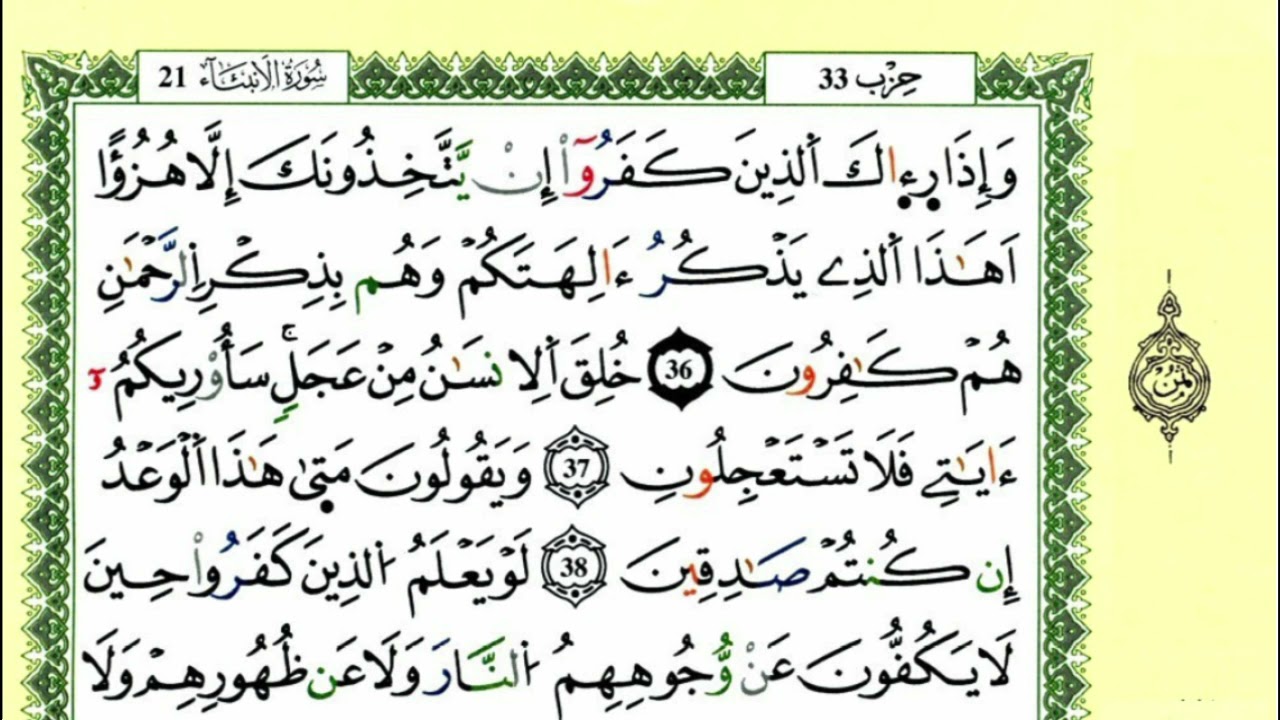 حِزْب 33
سُورَةُ الْأَنْبِيَاء 21
وَإِذَا رِءِاكَ اَ۬لذِينَ كَفَرُوٓاْ إِنْ يَّتَّخِذُونَكَ إِلَّا هُزُؤًا
اَهَٰذَا اَ۬لذِے يَذْكُرُ ءَالِهَتَكُمْ وَهُم بِذِكْرِ اِ۬لرَّحْمَٰنِ
هُمْ كَٰفِرُونَ 36 خُلِقَ اَ۬لِانسَٰنُ مِنْ عَجَلٖۚ سَأُوْرِيكُمُۥٓ
ءَايَٰتِے فَلَا تَسْتَعْجِلُونِ 37 وَيَقُولُونَ مَتۭيٰ هَٰذَا اَ۬لْوَعْدُ
إِن كُنتُمْ صَٰدِقِينَ 38 لَوْ يَعْلَمُ اُ۬لذِينَ كَفَرُواْ حِينَ
لَا يَكُفُّونَ عَنْ وُّجُوهِهِمُ اُ۬لنَّارَ وَلَا عَن ظُهُورِهِمْ وَلَا
ثُمُن